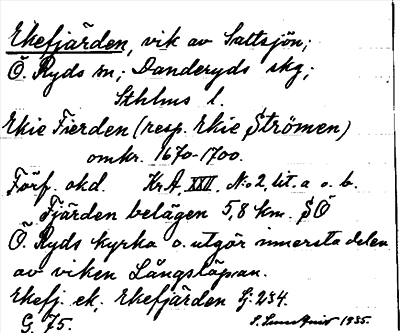 Ekefjärden, vik av Saltsjön;
Ö. Ryds sn; Danderyds skg;
Sthlms l.
Ekie Fierden (resp. Ekie Strömen)
omkr. 1670-1700.
Förf. okd. KrA, XXII, No 2, lit. a o. b.
Fjärden belägen 5,8 km. SÖ
Ö. Ryds kyrka o. utgör innersta delen
av viken Långslöpan.
Ekefj. ek; Ekefjärden G: 234.
G. 75. 1935.